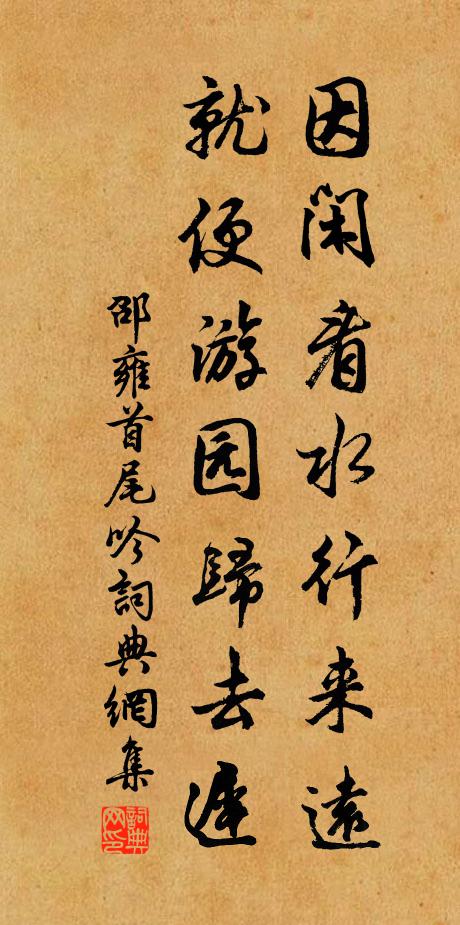 因閑看水行来遠
就便游园歸去遲
邵雍首尾吟詞典網集
詞典网印